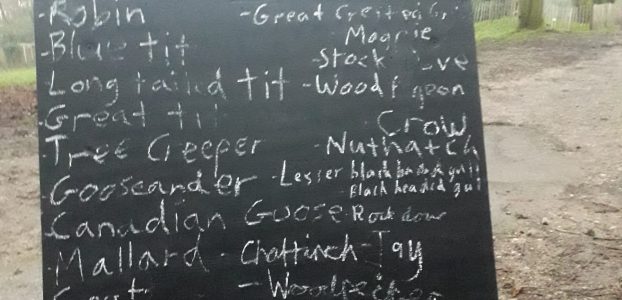 - Robin
- Blue tit
Long tailed tit
- Great tit
- Tree Creeper
- Gooseander
- Canadian Goose
- Mallard
- Great Crested
Magpie
- Stock
- Wood
Crow
- Nuthatch
- Lesser black backed gull
black headed gull
- Rock dove
- Chaffinch - Jay
- Woodpecker